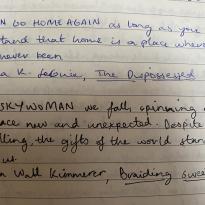 N GO HOME AGAIN as long as you
stand that home is a place where
never been
a K. LeGuin, The Dispossessed
SKYWOMAN we fall, spinning
ace new and unexpected. Despite
lling, the gifts of the world stan
us.
n Wall Kimmerer, Braiding Swee